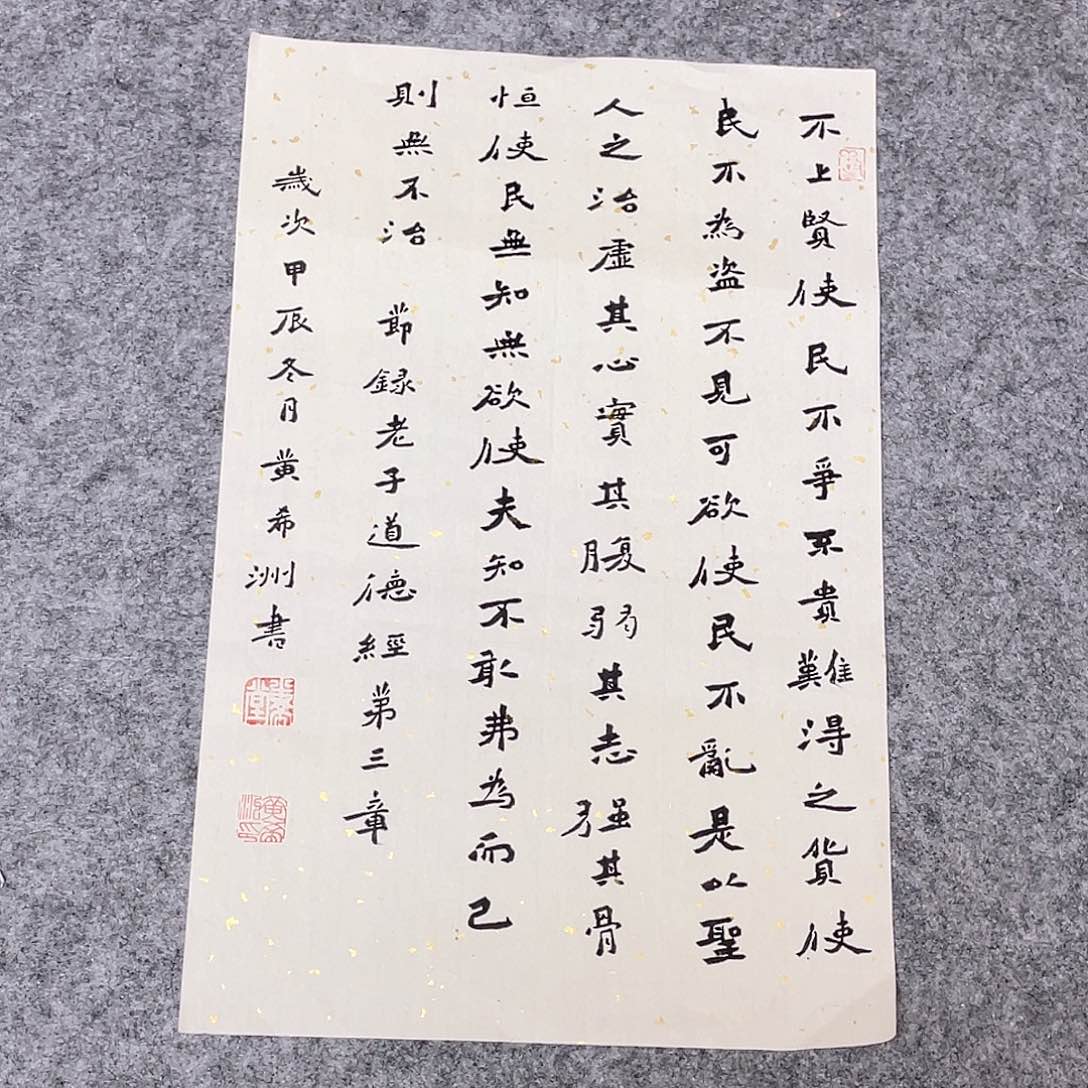 不上賢使民不爭不貴難得之貨使
民不為盜不見可欲使民不亂是以聖
人之治虛其心實其腹弱其志强其骨
恒使民無知無欲使夫知不敢弗為而已
則無不治 節録老子道德經第三章
歲次甲辰冬月黄希洲書